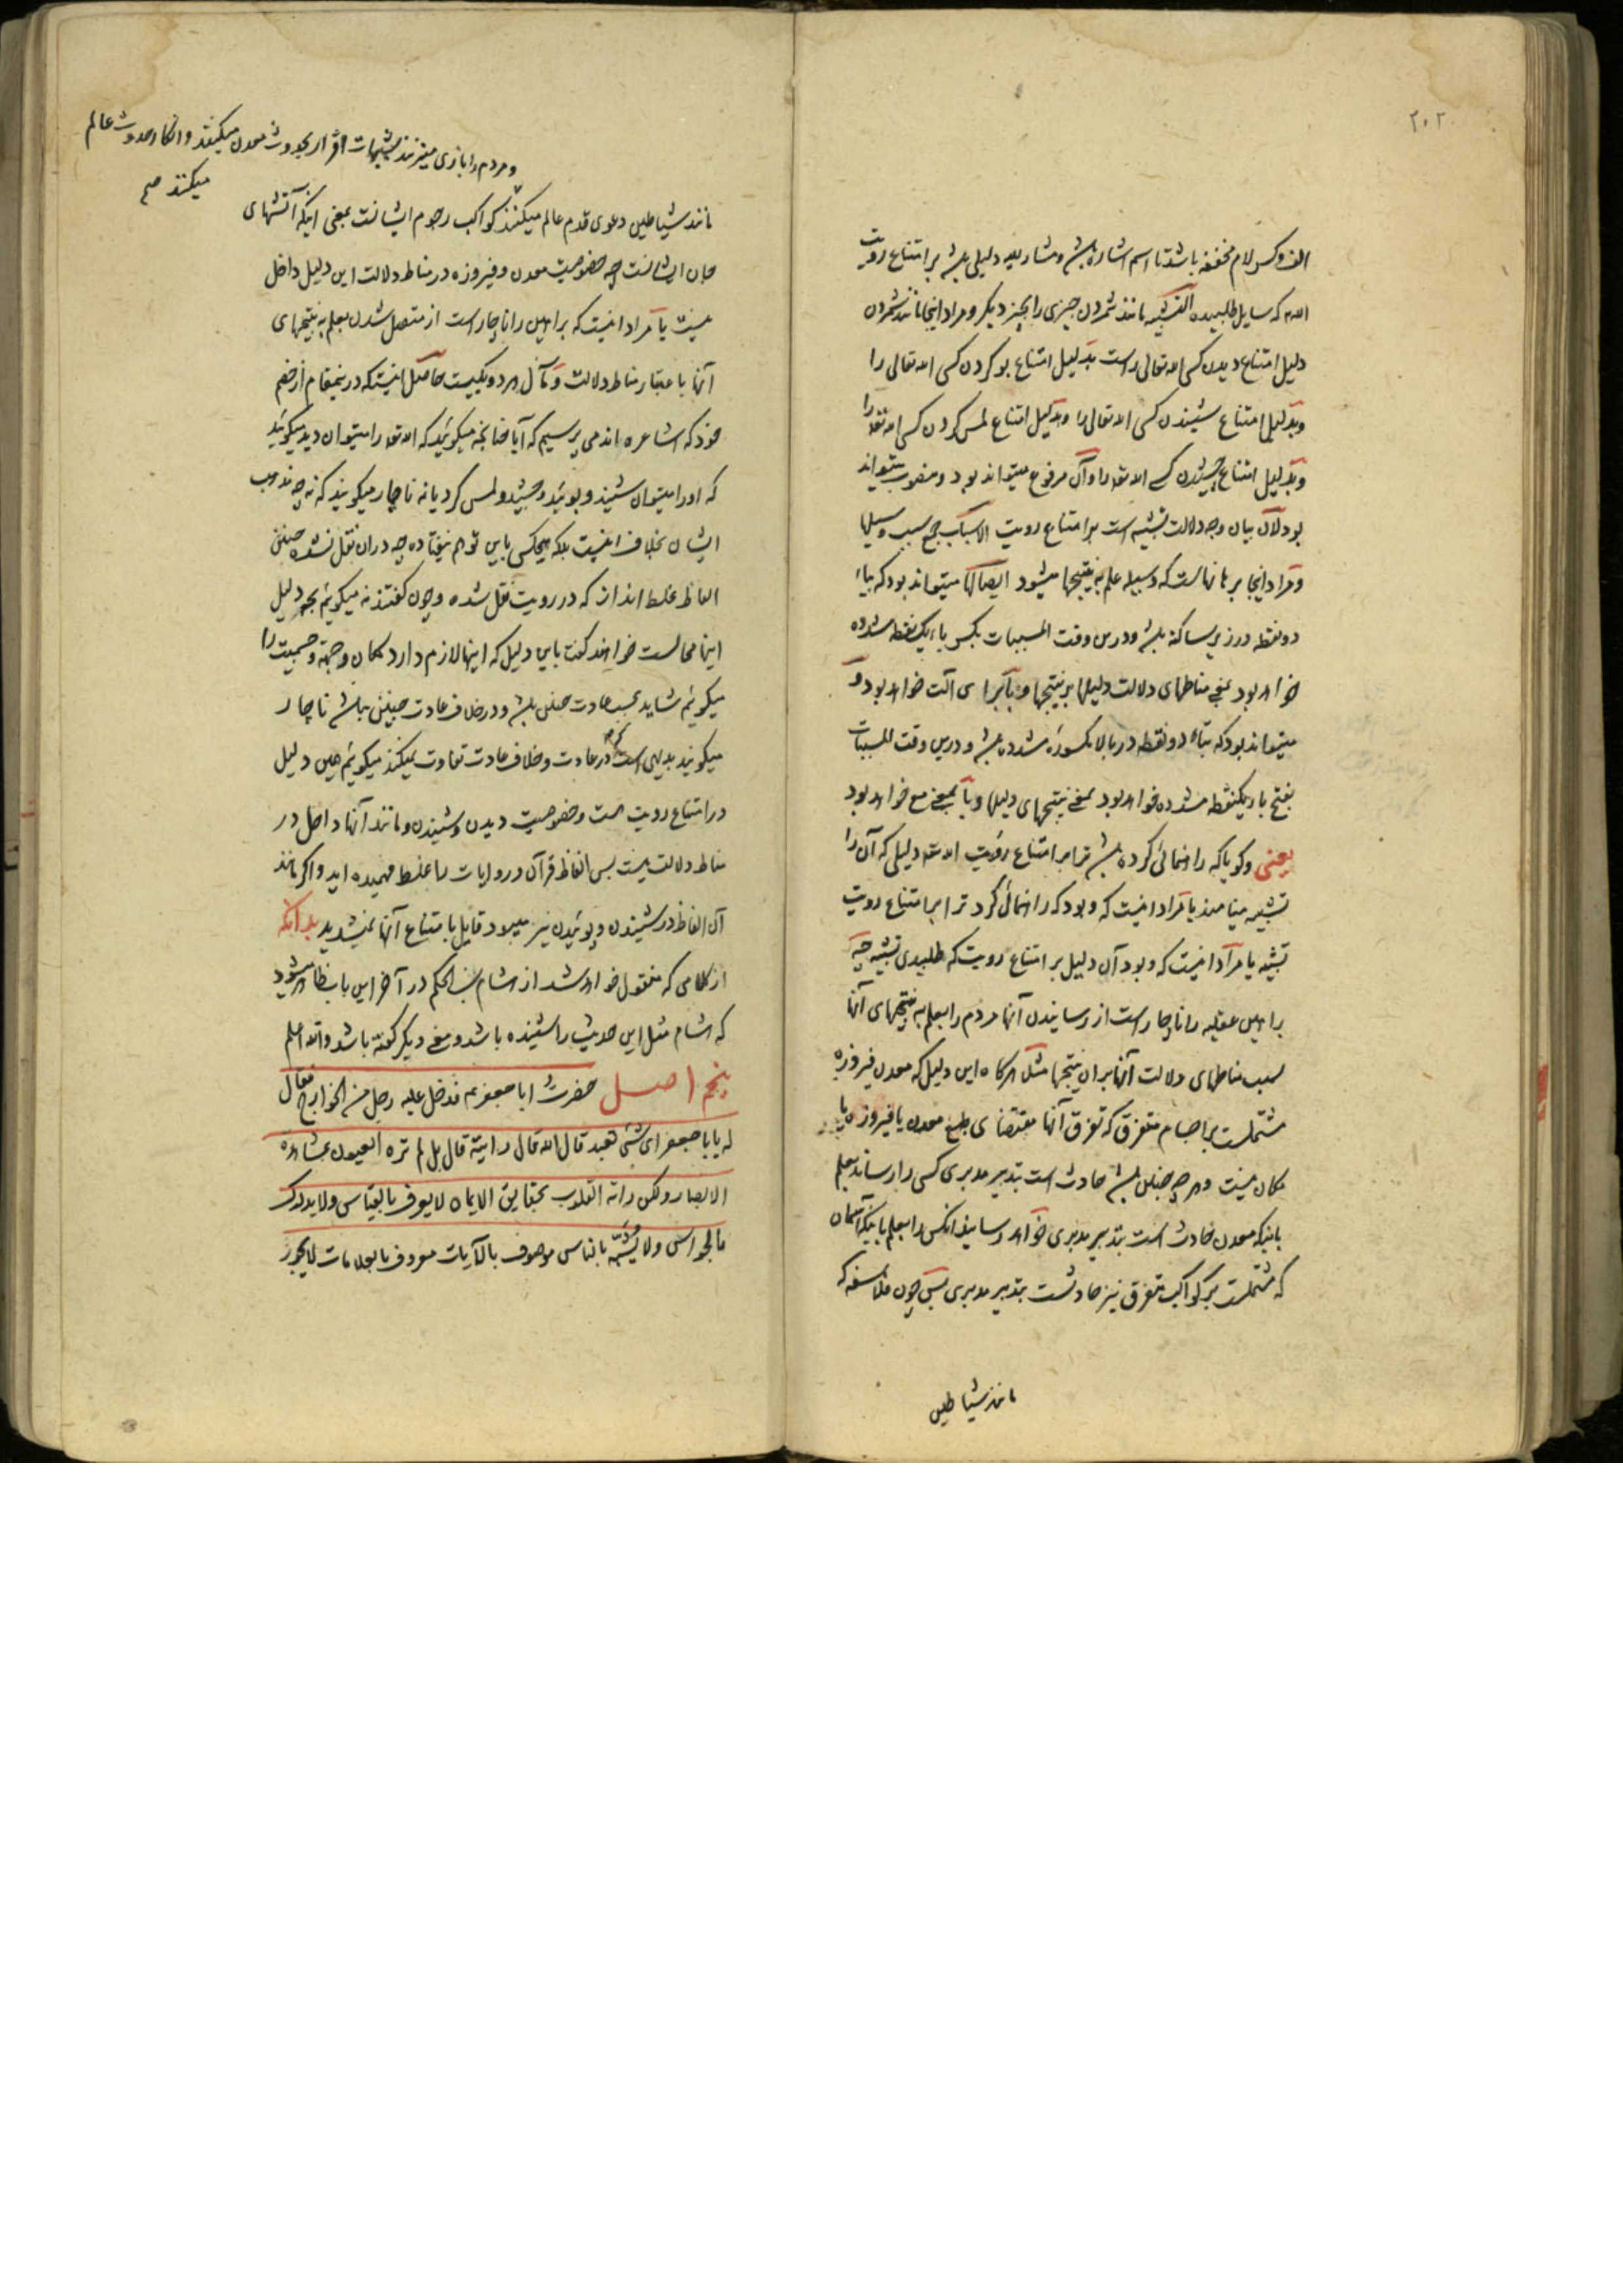 ۲۰۲
الف و کسر لام مخففه باشد تا اسم اشاره باشد و مشار الیه دلیلی باشد بر امتناع رویت
الله که سایل طلبیده التشبیه مانند شمردن چیزی را بچیز دیگر و مراد اینجا مانند شمردن
دلیل امتناع دیدن کسی الله تعالی راست بدلیل امتناع بو کردن کسی الله تعالی را
و بدلیل امتناع شنیدن کسی الله تعالی را و بدلیل امتناع لمس کردن کسی الله تعه را
و بدلیل امتناع چشیدن کسی الله تعه را و آن مرفوع میتواند بود و منصوب میتواند
بود لان بیان وجه دلالت تشبیه است بر امتناع رویت الاسباب جمع سبب وسیلها
و مراد اینجا برهانهاست که وسیله علم به نتیجها میشود ایصالها میتواند بود که بیاء
دو نقطه در زیر ساکنه باشد و درین وقت المسببات بکسر باء یک نقطه مشدده
خواهد بود بمعنی مناطهای دلالت دلیلها بر نتیجها و با برای آلت خواهد بود و
میتواند بود که بتاء دو نقطه در بالا مکسوره مشدده باشد و درین وقت المسببات
بفتح باء یکنقطه مشدده خواهد بود بمعنی نتیجهای دلیلها و با بمعنی مع خواهد بود
یعنی و گویا که راهنمائی کرده باشد ترا بر امتناع رویت الله تعه دلیلی که آن را
تشبیه مینامند یا مراد اینست که و بود که راهنمائی کرد ترا بر امتناع رویت
تشبیه یا مراد اینست که و بود آن دلیل بر امتناع رویت که طلبیدی تشبیه چه
براهین عقلیه را ناچار است از رسانیدن آنها مردم را بعلم به نتیجهای آنها
بسبب مناطهای دلالت آنها بر ان نتیجها مثلا هرگاه این دلیل که معدن فیروزه
مشتملست بر اجسام متفرق که تفرق آنها مقتضای طبع معدن یا فیروزه یا
مکان نیست و هر چه چنین باشد حادث است بتدبیر مدبری کسی را رساند بعلم
باینکه معدن حادث است بتدبیر مدبری خواهد رسانید انکس را بعلم باینکه آسمان
که مشتملست بر کواکب متفرق نیز حادثست بتدبیر مدبری پس چون فلاسفه که
مانند شیاطین
و مردم را بازی میدهند بشبهات اقرار بحدوث معدن میکنند و انکار حدوث عالم
میکنند صح
مانند شیاطین دعوی قدم عالم میکنند کواکب رجوم ایشانست بمعنی اینکه آتشهای
جان ایشانست چه خصوصیت معدن و فیروزه در مناط دلالت این دلیل داخل
نیست یا مراد اینست که براهین را ناچار است از متصل شدن بعلم به نتیجهای
آنها باعتبار مناط دلالت و مآل هر دو یکیست حاصل اینست که درینمقام از خصم
خود که اشاعره اند می پرسیم که آیا چنانچه میگویید که الله تعه را میتوان دید میگویید
که او را میتوان شنید و بوئید و چشید و لمس کرد یا نه ناچار میگویند که نه چه مذهب
ایشان بخلاف اینست بلکه هیچکس باین توهم نیفتاده چه دران نقل نشده چنین
الفاظ غلط انداز که در رویت نقل شده و چون گفتند نه میگوئیم بچه دلیل
اینها محالست خواهند گفت باین دلیل که اینها لازم دارد مکان و جهة و جسمیت را
میگوئیم شاید بحسب عادت چنین باشد و در خلاف عادت چنین نباشد ناچار
میگویند بدیهی است که در عادت و خلاف عادت تفاوت نمیکند میگوئیم همین دلیل
در امتناع رویت هست و خصوصیت دیدن و شنیدن و مانند آنها داخل در
مناط دلالت نیست پس الفاظ قرآن و روایات را غلط فهمیده اید و اگر مانند
آن الفاظ در شنیدن و بوئیدن نیز میبود قایل بامتناع آنها نمیشدید بدانکه
از کلامی که منقول خواهد شد از هشام بن الحکم در آخر این باب ظاهر میشود
که هشام مثل این حدیث را شنیده باشد و معنی دیگر گفته باشد والله اعلم
پنجم اصل حضرت ابا جعفر عم فدخل علیه رجل من الخوارج فقال
له یا با جعفر ای شئ تعبد قال الله قال رایته قال بل لم تره العیون بمشاهدة
الابصار ولکن راته القلوب بحقایق الایمان لا یعرف بالقیاس ولا یدرک
بالحواس ولا یشبه بالناس موصوف بالآیات معروف بالعلامات لا یجور